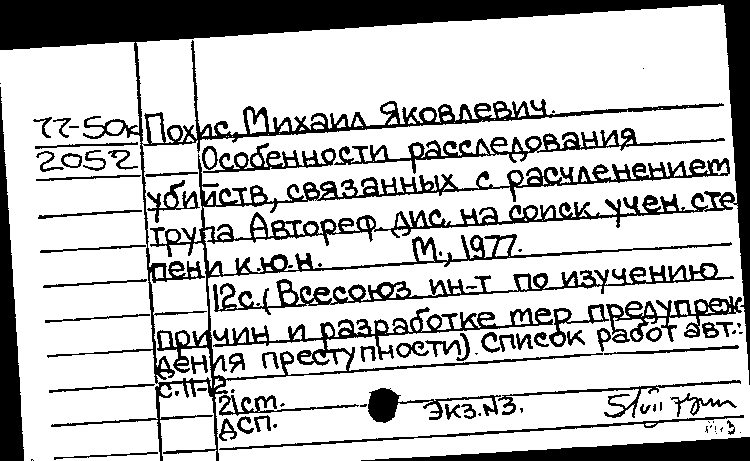 77-50к Похис, Михаил Яковлевич.
2052 Особенности расследования
убийств, связанных с расчленением
трупа Автореф. дис. на соиск. учен. сте
пени к.ю.н. М., 1977.
12с. (Всесоюз. ин-т по изучению
причин и разработке мер предупреж-
дения преступности). Список работ авт.:
с.11-12.
21ст. Экз.N3.
ДСП.